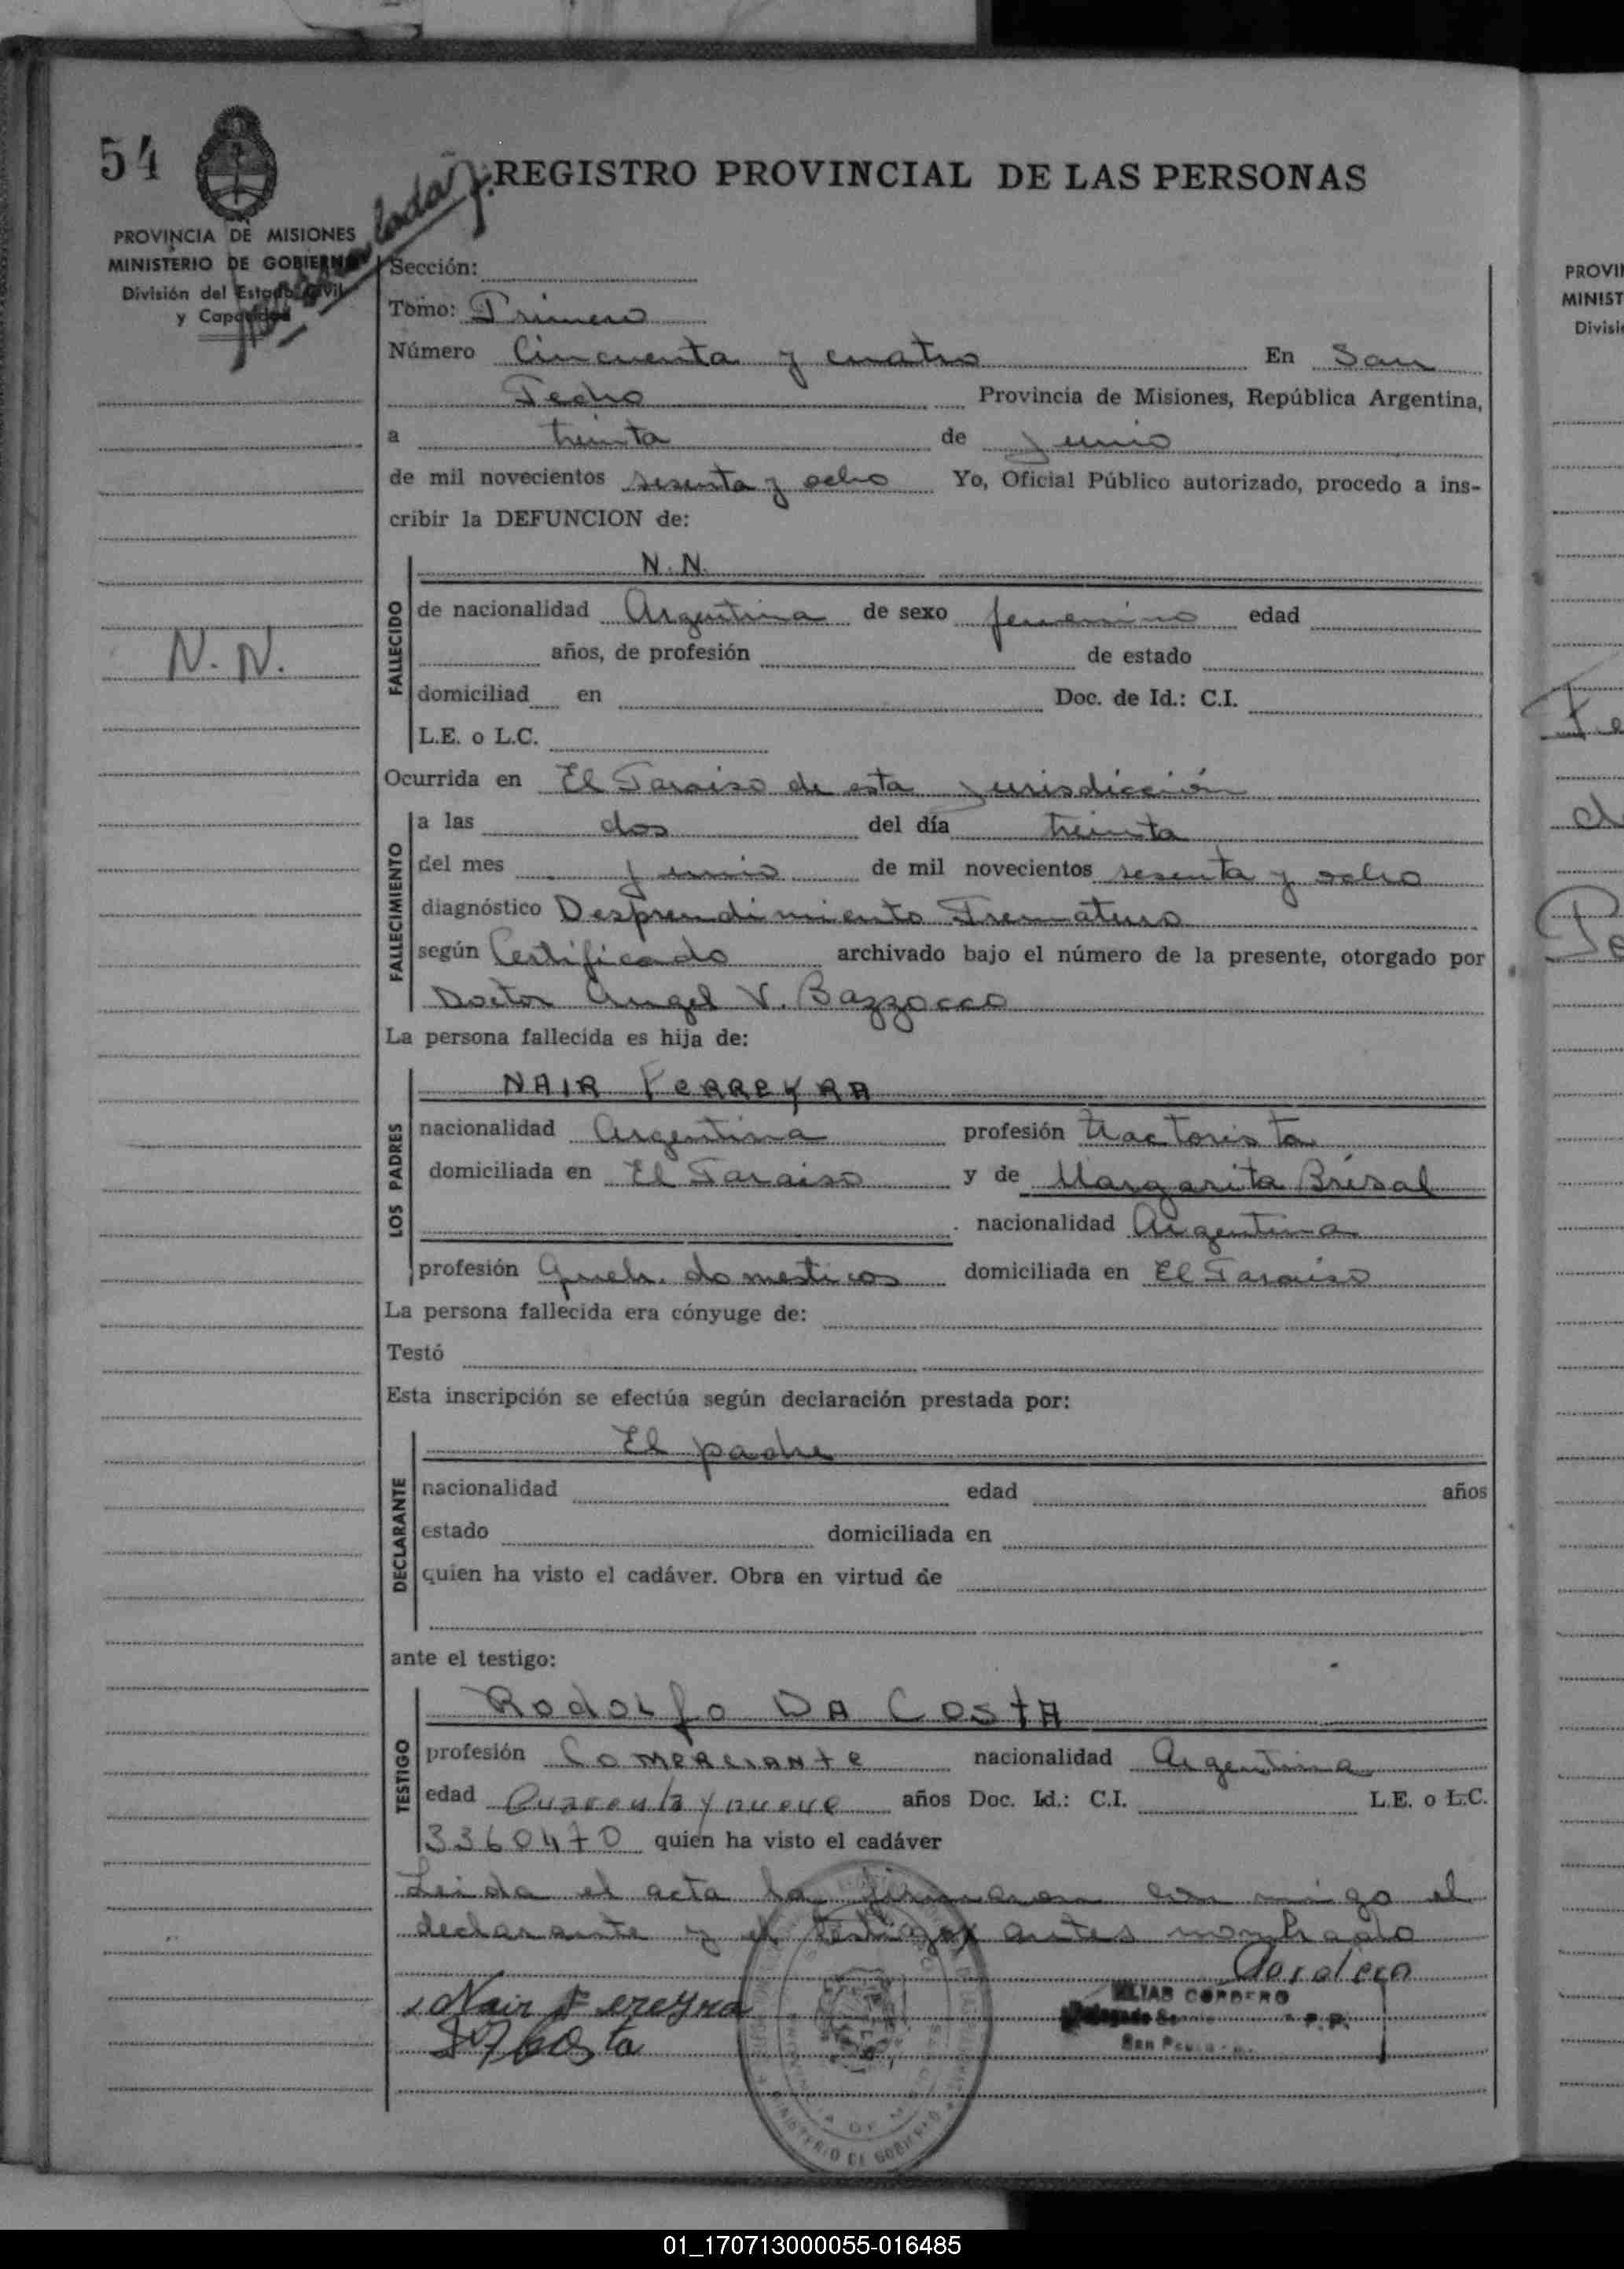 54
REGISTRO PROVINCIAL DE LAS PERSONAS
PROVINCIA DE MISIONES
MINISTERIO DE GOBIERNO
División del Estado Civil
y Capacidad
Sección:
Tomo: Primero
Número Cincuenta y cuatro En San
Pedro Provincia de Misiones, República Argentina,
a treinta de junio
de mil novecientos sesenta y ocho Yo, Oficial Público autorizado, procedo a ins-
cribir la DEFUNCION de:
N.N.
FALLECIDO
de nacionalidad Argentina de sexo femenino edad
N.N.
años, de profesión de estado
domiciliad en Doc. de Id.: C.I.
L.E. o L.C.
Ocurrida en El Paraiso de esta jurisdicción
FALLECIMIENTO
a las dos del día treinta
del mes junio de mil novecientos sesenta y ocho
diagnóstico Desprendimiento Prematuro
según Certificado archivado bajo el número de la presente, otorgado por
Doctor Angel V. Bazzocco
La persona fallecida es hija de:
LOS PADRES
NAIR FERREYRA
nacionalidad Argentina profesión tractorista
domiciliada en El Paraiso y de Margarita Brisal
nacionalidad Argentina
profesión Queh. domesticos domiciliada en El Paraiso
La persona fallecida era cónyuge de:
Testó
Esta inscripción se efectúa según declaración prestada por:
DECLARANTE
El padre
nacionalidad edad años
estado domiciliada en
quien ha visto el cadáver. Obra en virtud de
ante el testigo:
TESTIGO
Rodolfo DA COSTA
profesión COMERCIANTE nacionalidad Argentina
edad Cuarenta y nueve años Doc. Id.: C.I. L.E. o L.C.
3360470 quien ha visto el cadáver
Leida el acta la firmaron conmigo el
declarante y el testigo antes nombrado
Nair Fereyra
ELIAS CORDERO
MINISTERIO DE GOBIERNO
01_170713000055-016485